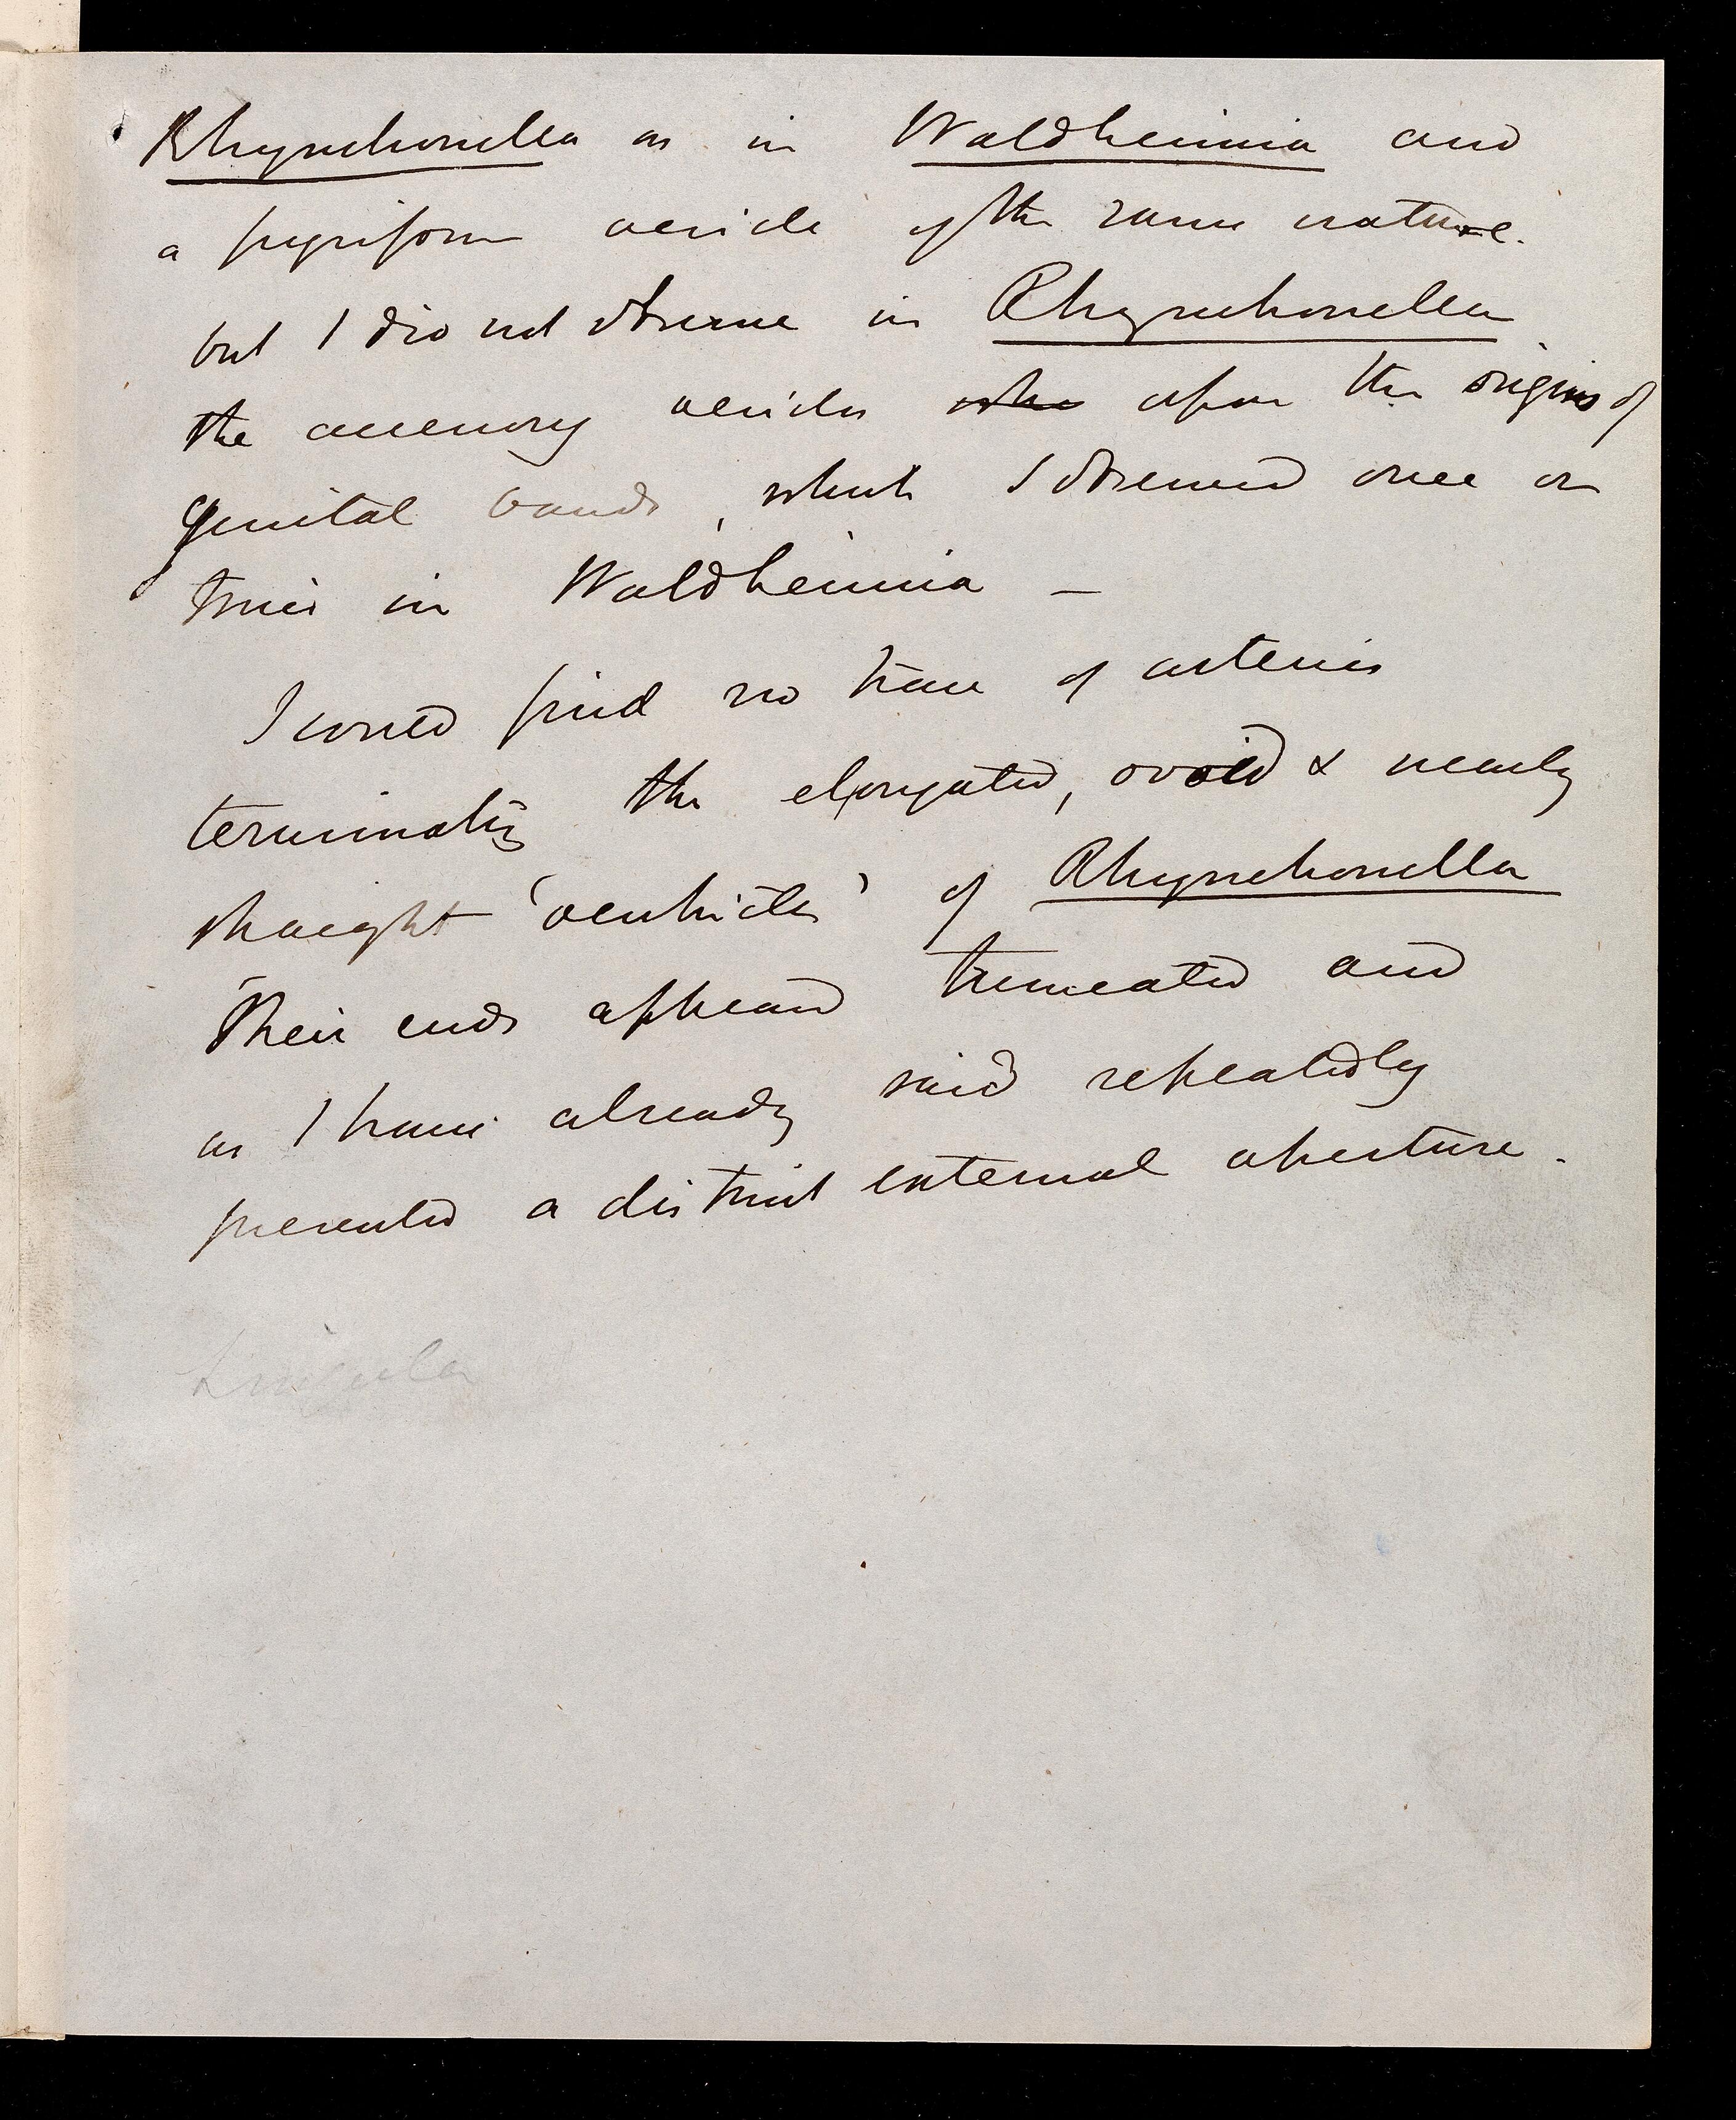 Rhynchonella as in Waldheimia and
a pyriform vesicle of the same nature.
but I did not observe in Rhynchonella
the accessory vesicles who upon the origins of
genital bands, which I observed once or
twice in Waldheimia –
I could find no trace of arteries
terminating the elongated, ovoid & nearly
straight 'ventricles' of Rhynchonella
Their ends appeared truncated and
as I have already said repeatedly
presented a distinct external aperture.
Lingula